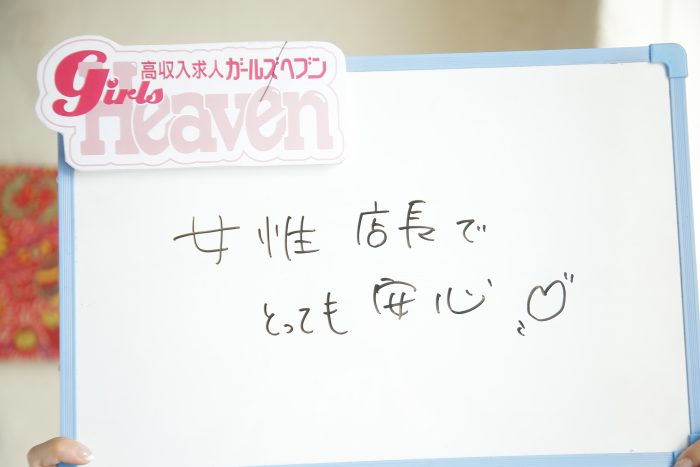 高収入求人ガールズヘブン
Girls
Heaven
女性店長で
とっても安心♡